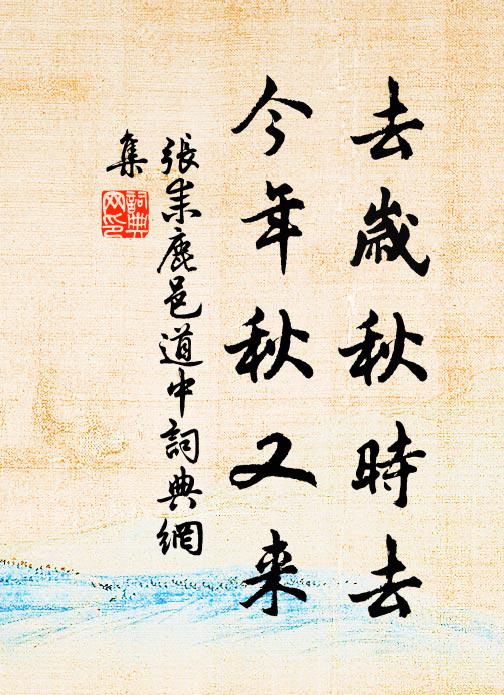 去歲秋時去
今年秋又来
張耒鹿邑道中詞典網
集
詞典
网印